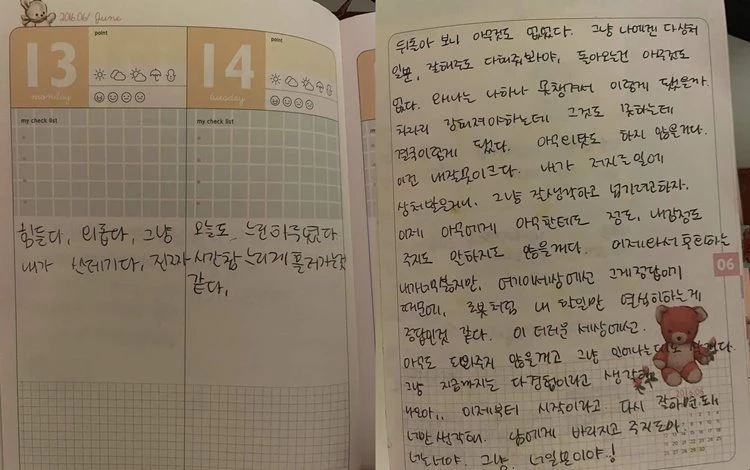 2016.06/ June
13
monday
point
my check list
힘들다, 외롭다, 그냥
내가 쓰레기다, 진짜
14
tuesday
point
my check list
오늘도 느린하루였다
시간참 느리게 흘러가는것
같다,
뒤돌아 보니 아무것도 없었다. 그냥 나에겐 다상처
일뿐, 잘해주도 다해줘봐야, 돌아오는건 아무것도
없다. 왜나는 나하나 못챙겨서 이렇게 됐을까.
차라리 강해져야하는데 그것도 못하는데
결국이렇게 됐다. 아무리탓도 하지 않을거다.
이건 내잘못이크다. 내가 저지른일에
상처받은거니, 그냥 잘생각하고 넘기려고하자.
이제 아무에게 아무한테도 정도, 내감정도
주지도 말하지도 않을거다. 이제와서 후회하는
내가너무웃기지만, 여기이세상에선 그게정답이기
때문에, 로봇처럼 내 할일만 열심히하는게
정답인것 같다. 이 더러운 세상에선.
아무도 도와주지 않을꺼고 그냥
그냥 지금까지는 다경험이라고 생각
이제부터 시작이라고 다시
너만생각해. 남에게 바라지고 주지도마.
너는너야. 그냥, 너일뿐이야!
06